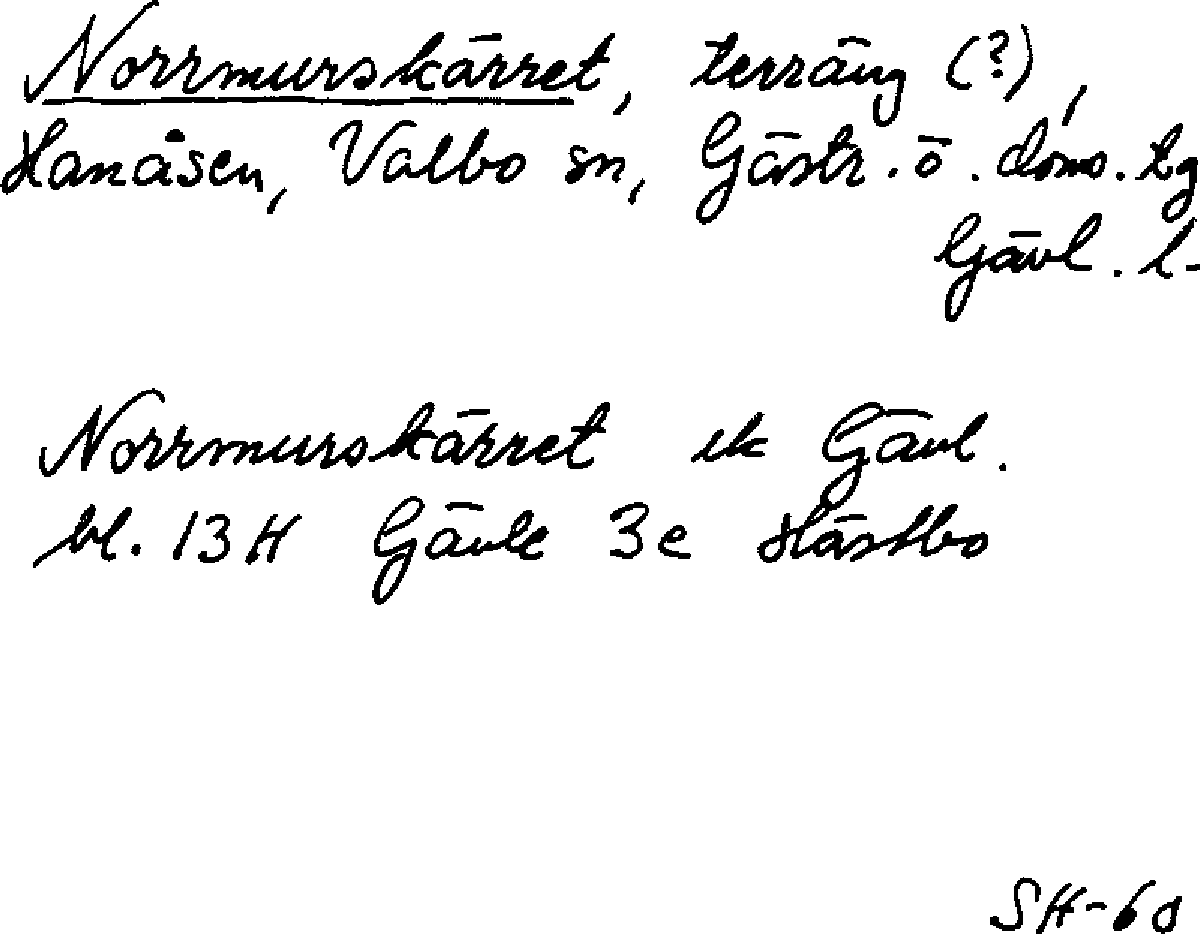 Norrmurskärret, terräng (?),
Hanåsen, Valbo sn, Gästr. ö. doms. tg
Gävl. l.
Norrmurskärret ek Gävl.
bl. 13H Gävle 3e Hästbo
SH-60